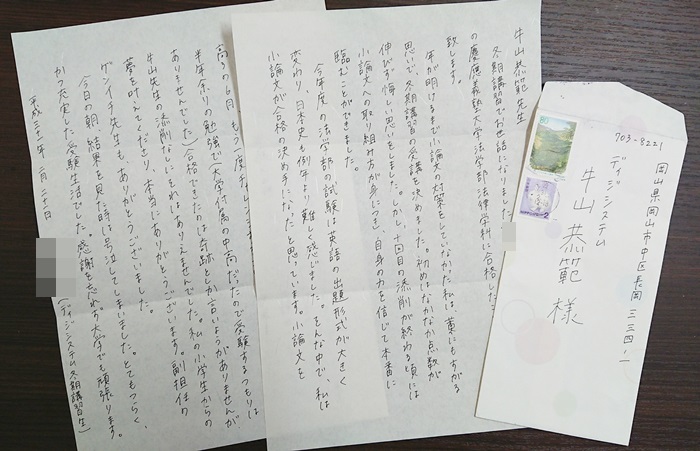 牛山恭範先生
冬期講習でお世話になりました
の慶應義塾大学法学部法律学科に合格した
致します。
年が明けるまで小論文の対策をしていなかった私は、藁にもすがる
思いで、冬期講習の受講を決めました。初めはなかなか点数が
伸びず悔しい思いをしました。しかし、十回目の添削が終わる頃には
小論文への取り組み方が身につき、自身の力を信じて本番に
臨むことができました。
今年度の法学部の試験は英語の出題形式が大きく
変わり、日本史も例年より難しく感じました。そんな中で、私は
小論文が合格の決め手になったと思っています。小論文を
高3の6月、もう一度
半年余りの勉強で(大学付属の中高だったので受験するつもりは
ありませんでした)合格できたのは奇跡としか言いようがありませんが、
牛山先生の添削なしにそれはありえませんでした。私の小学生からの
夢を叶えてくださり、本当にありがとうございます。副担任の
ゲンイチ先生も、ありがとうございました。
今日の朝、結果を見た時は号泣してしまいました。とてもつらく、
かつ充実した受験生活でした。感謝を忘れず大学でも頑張ります。
平成三十一年 二月二十一日
(ディジシステム冬期講習生)
703-8221
岡山県岡山市中区長岡三三四ー一
ディジシステム
牛山 恭範 様
2